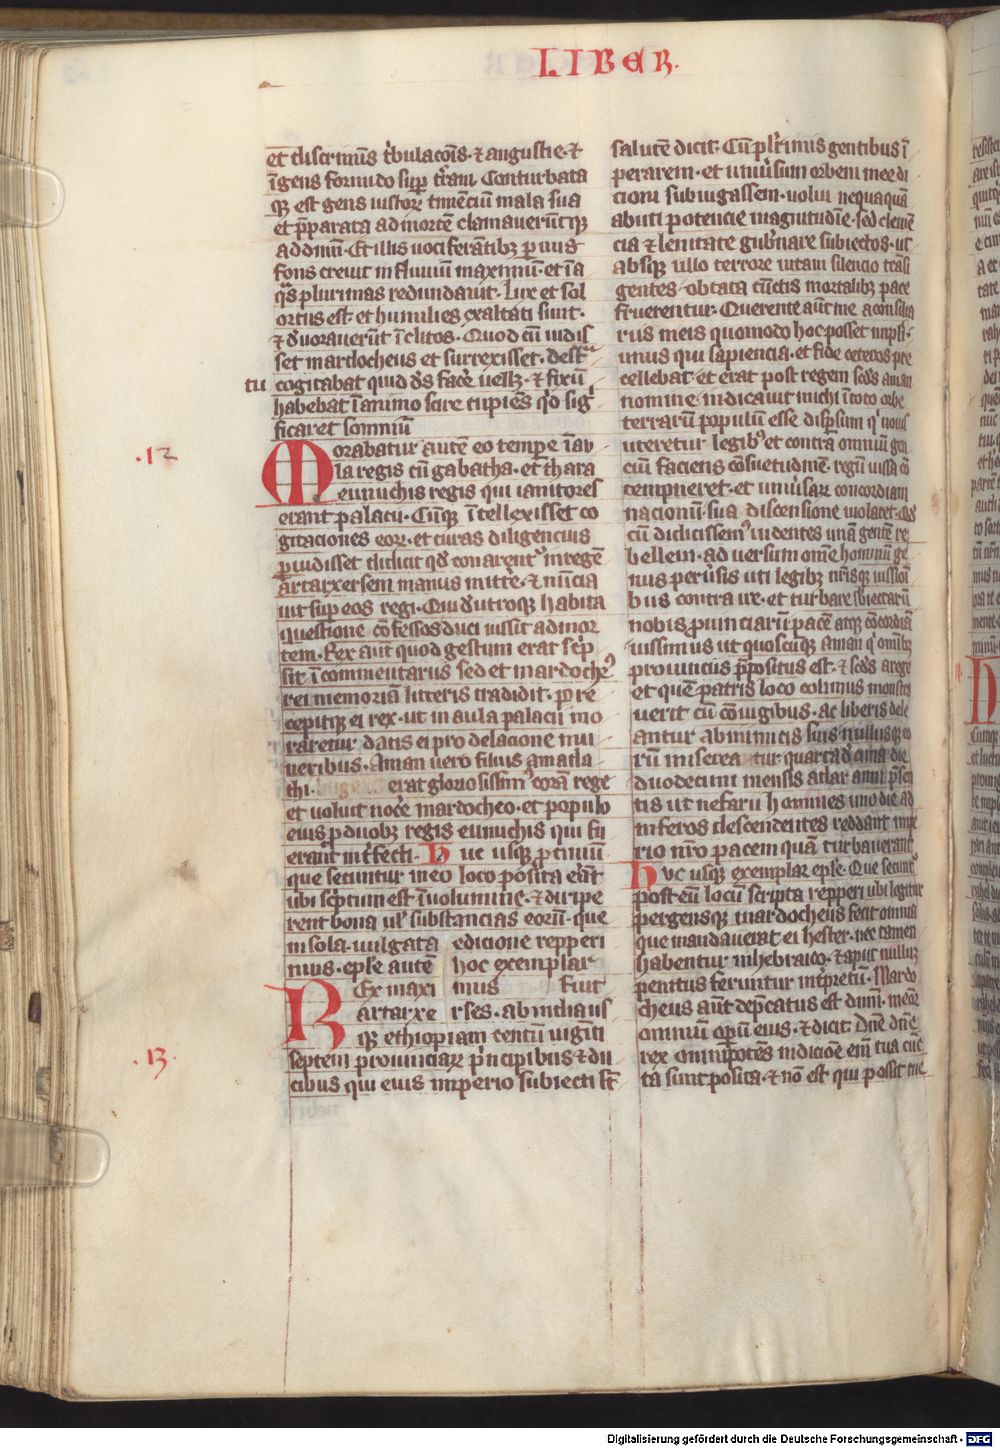 LIBER.
et discrimīs t̄bulacōis. et angustie. et
īgens formido sup̄ t̄ram. Conturbata
q̨ est gens iustor̨ timēciū mala sua
et p̄parata ad mortē. clamauerūtq̨
ad dn̄m. Et illis uociferātib; paruus
fons creuit in fluuiū maximū. et ī a
q̄s plurimas redundauit. Lux et sol
ortus est. et humiles exaltati sunt.
et d̓uorauerūt īclitos. Quod cū uidis
set mardocheus et surrexisset. de st̄ᵃ
tu cogitabat quid d̄s fac̓e uellet. et fixū
habebat ī animo scire cupiēs q̇d sig̓
ficaret somniū
.12
Morabatur autē eo tempe̓ ī au
la regis cū gabatha. et thara
eunuchis regis qui ianitores
erant palacii. Cūq̨ ītellexisset co
gitaciones eor̨. et curas diligencius
p̄uidisset didicit qd̓ conarent᷑ in regē
artarxersem manus mitt̓e. et nūcia
uit sup̓ eos regi. Qui d̓ utrosq̨ habita
questione cōfessos duci iussit ad mor
tem. Rex aūt quod gestum erat sc̓p
sit ī commentariis sed et mardochei
rei memoriā litteris tradidit. p̄re
cepitq̨ ei rex. ut in aula palacii mo
raretur datis ei pro delacione mu
neribus. Aman uero filius amatha
thi. erat gloriosissimꝰ corā rege
et uoluit noc̓e mardocheo. et populo
eius p̱ duob; regis eunuchis qui fu
erāt īt̓fecti. Huc usq̨ p̱hemiū
que secuntur in eo loco posita erāt
ubi sc̓ptum est ī uolumine. et diripe
rent bona ul̓ substancias eorū. que
in sola uulgata edicione repperi
mus. ep̄le autē hoc exemplar
Rex maxi mus fuit
artarxe rses. ab india us
q̨ ethiopiam centū uigīti
.13.
septem prouinciar̨ p̓ncipibus et du
cibus qui eius imperio subiecti sūt
salutē dicit. Cū pl̓rimis gentibus ī
perarem. et uniu̓sum orbem mee di
cioni subiugassem. uolui nequaquā
abuti potencie magnitudīe. sed cleme̅
cia et lenitate gub̓nare subiectos. ut
absq̨ ullo terrore uitam silencio trāsi
gentes. obtata cūctis mortalib; pace
fruerentur. Querente aūt me a consilia
riis meis quomodo hoc posset impl̓i.
unus qui sapiencia. et fide ceteros pre
cellebat. et erat post regem sc̄ds aman
nomine. indicauit michi ī toto orbe
terrarū populū esse disp̓sum q̇ nouis
uteretur legibꝰ et contra omniū gen
ciū faciens cōsuetudinē. regū iussa cō
tempneret. et uniu̓sar̨ concordiam
nacionū. sua discensione uiolaret. Qd̓
cū didicissemꝰ uidentes unā gentē re
bellem. aduersum om̄e hominū ge
nus peru̓sis uti legib; nr̄isq̨ iussioī
bus contra ire. et turbare subiectarū
nobis prouinciarū pacē atq̨ cōcordiā
iussimus ut quoscūq̨ aman q̇ omīb;
prouinciis p̄positus est. et sc̄ds a rege
et quē patris loco colimus monstra
uerit cū cōiugibus. ac liberis dele
antur ab inimicis suis nullusq̨ eo
rū misereatur. quartad̓cima die
duodecimi mensis adar anni p̄sen
tis ut nefarii homines uno die ad
inferos descendentes reddant impe
rio nr̄o pacem quā turbauerant
Huc usq̨ exemplar ep̄le. Que secuntꝰ
post eū locū scripta repperi ubi legitur
pergensq̨ mardocheus fecit omnia
que mandauerat ei hester. nec tamen
habentur in hebraico. et aput nullum
penitus feruntur int̓pretū. Mardo
cheus aūt dep̄catus est dn̄m. memor
omniū op̱um eius. et dicit. Dn̄e dn̄e
rex omnipotēs in dicioe̅ eni̅ tua cūc
ta sunt posita. et nō est qui possit tue
Digitalisierung gefördert durch die Deutsche Forschungsgemeinschaft - DFG